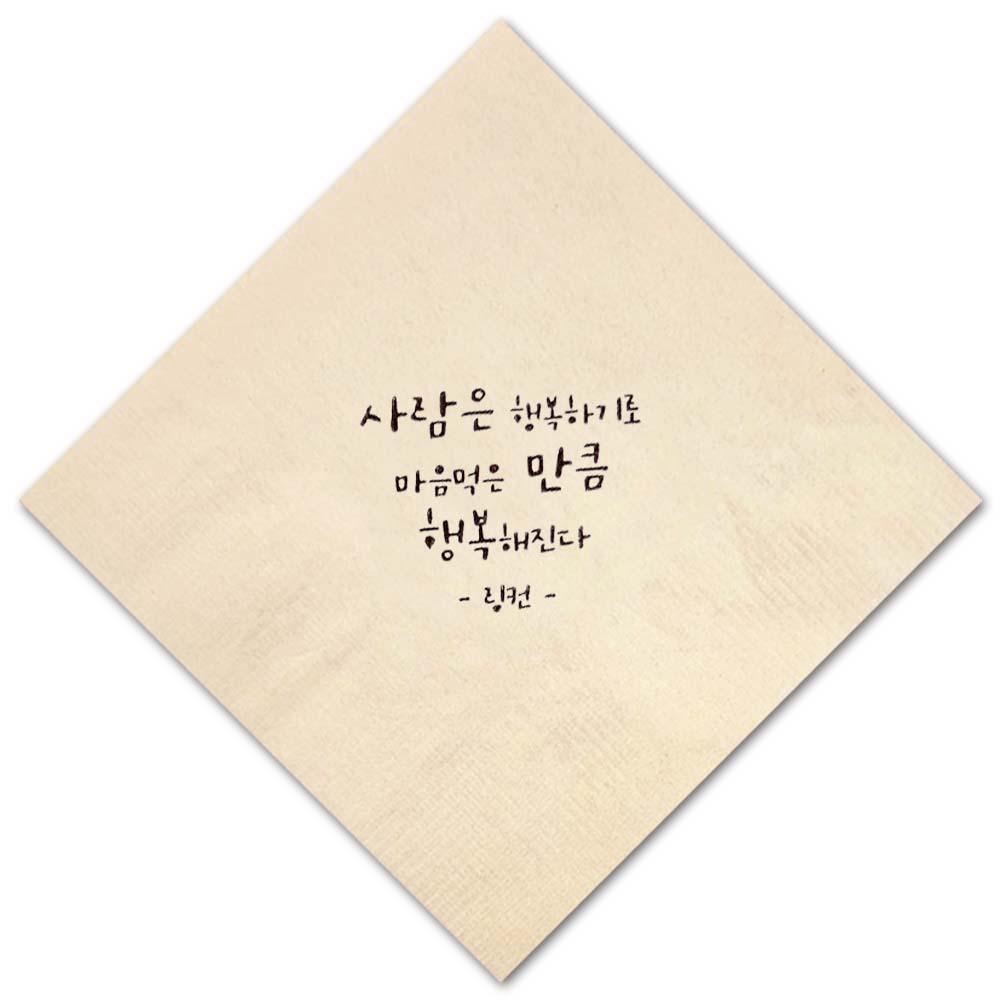 사람은 행복하기로
마음먹은 만큼
행복해진다
- 링컨 -